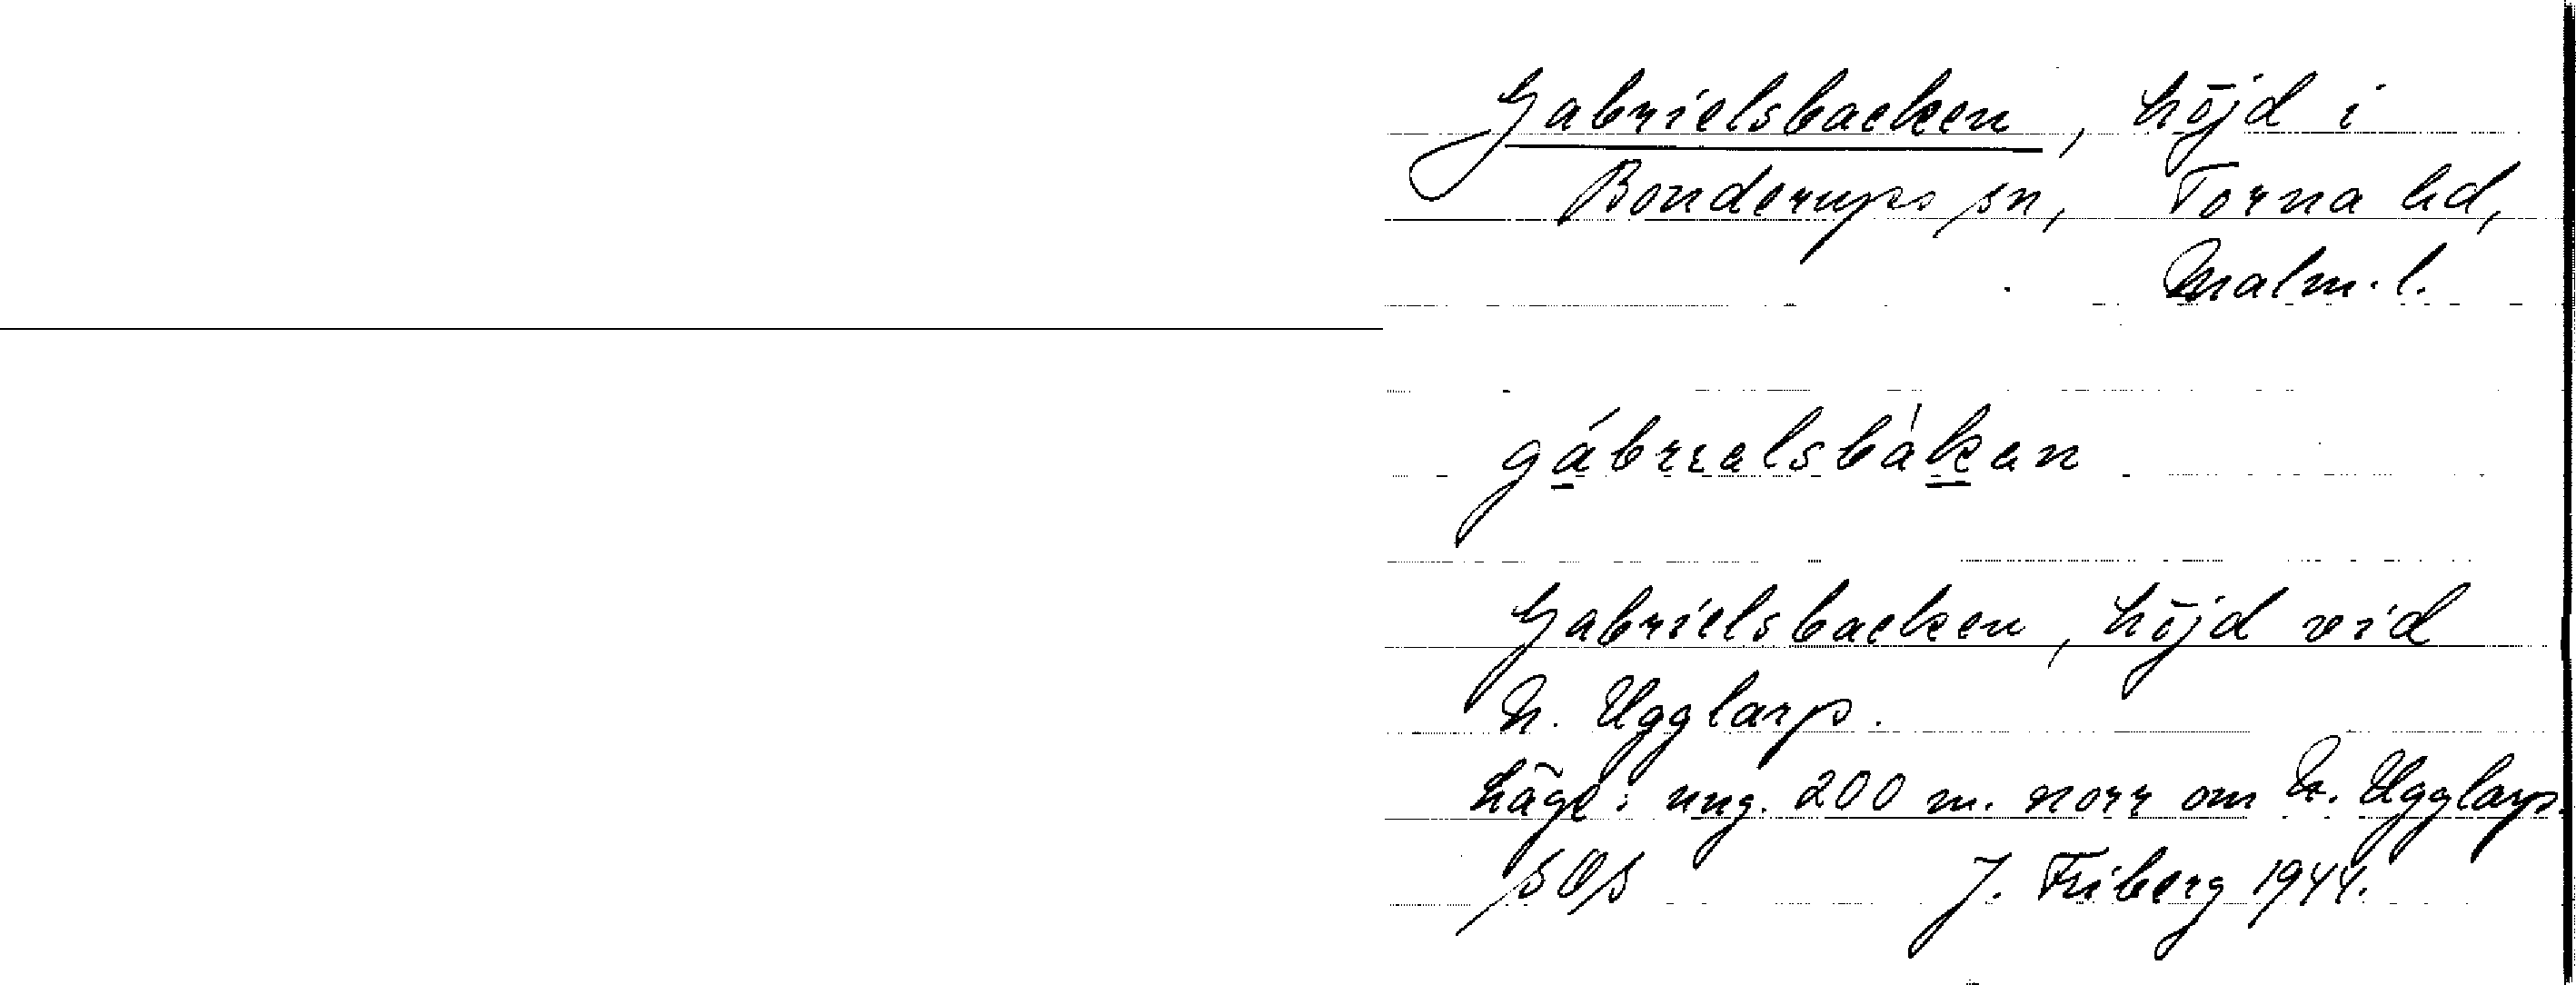 Gabrielsbacken, höjd i
Bonderups sn, Torna hd,
Malm. l.
gábrıalsbàkan
Gabrielsbacken, höjd vid
N. Ugglarp.
Läge: ung. 200 m. norr om N. Ugglarp.
SOS J. Friberg 1944.